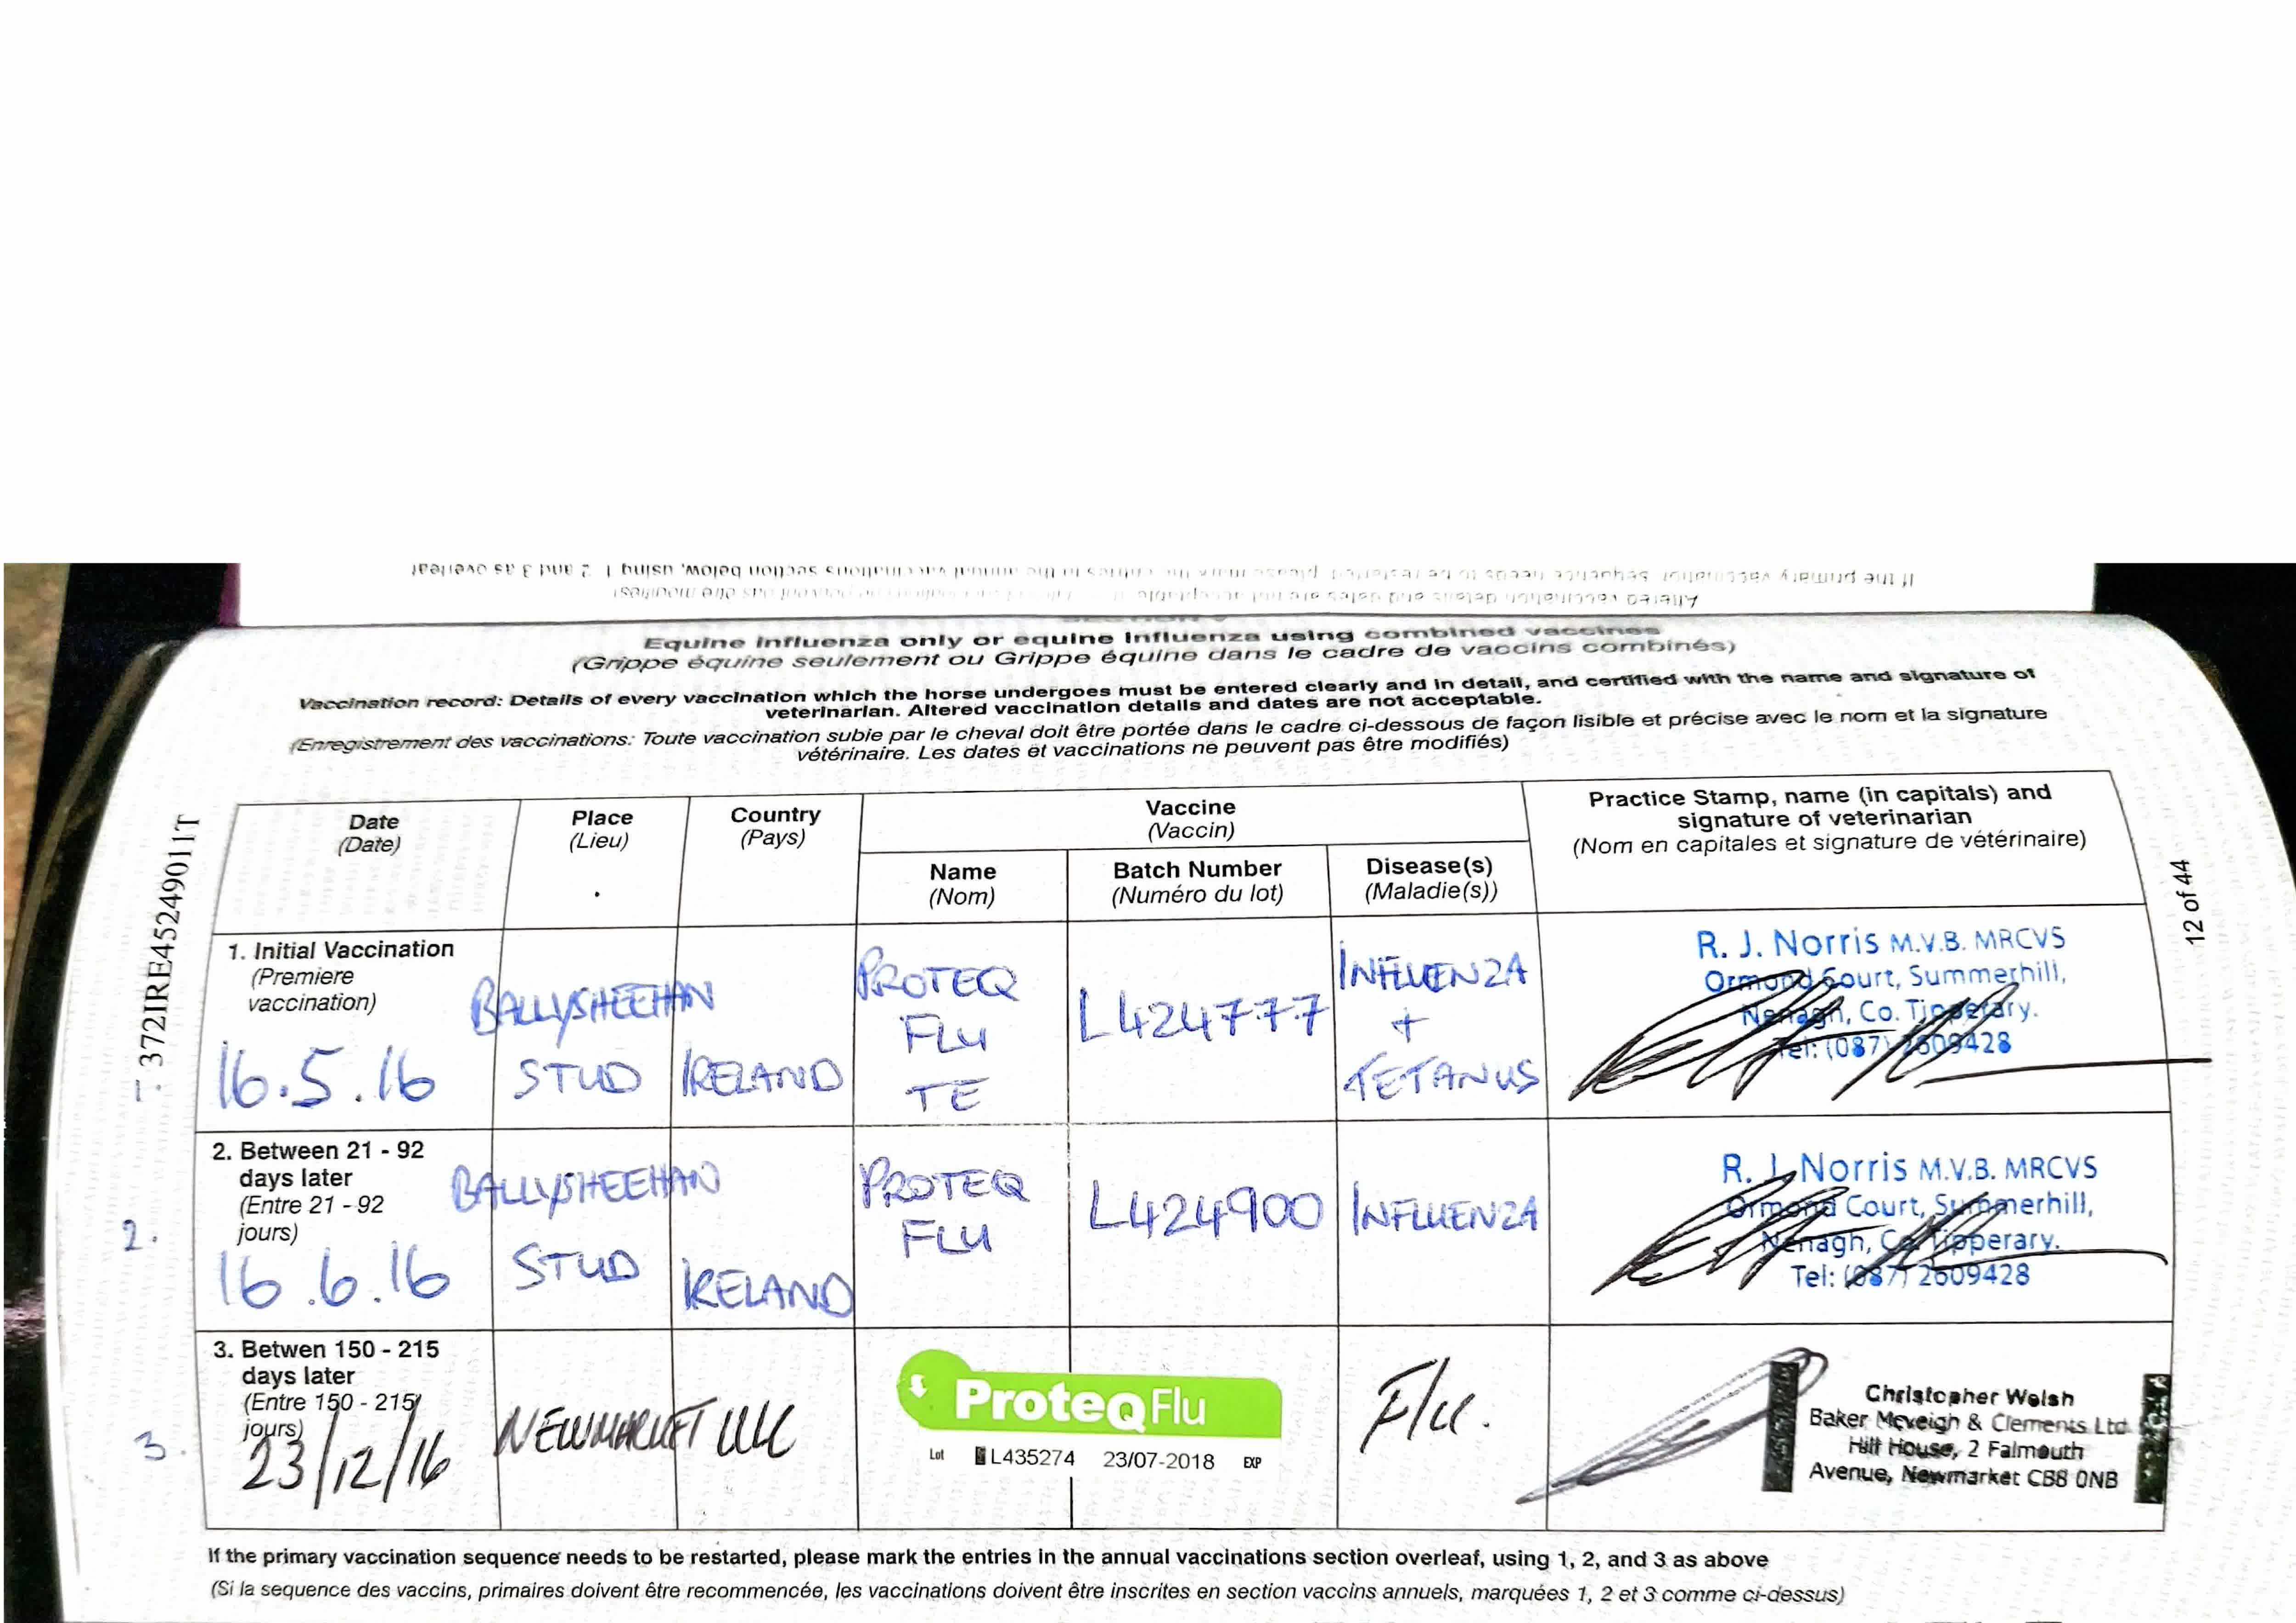 If the primary vaccination sequence needs to be restarted, please mark the entries in the annual vaccinations section below, using 1, 2 and 3 as overleaf
Altered vaccination details and dates are not acceptable
Equine influenza only or equine influenza using combined vaccines
(Grippe équine seulement ou Grippe équine dans le cadre de vaccins combinés)
Vaccination record: Details of every vaccination which the horse undergoes must be entered clearly and in detail, and certified with the name and signature of
veterinarian. Altered vaccination details and dates are not acceptable.
(Enregistrement des vaccinations: Toute vaccination subie par le cheval doit être portée dans le cadre ci-dessous de façon lisible et précise avec le nom et la signature
vétérinaire. Les dates et vaccinations ne peuvent pas être modifiés)
372IRE45249011T
12 of 44
Date
(Date)
Place
(Lieu)
Country
(Pays)
Vaccine
(Vaccin)
Name
(Nom)
Batch Number
(Numéro du lot)
Disease(s)
(Maladie(s))
Practice Stamp, name (in capitals) and
signature of veterinarian
(Nom en capitales et signature de vétérinaire)
1. Initial Vaccination
(Premiere
vaccination)
16.5.16
BALLYSHEEHAN
STUD
IRELAND
PROTEQ
FLU
TE
L424777
INFLUENZA
+
TETANUS
R. J. Norris M.V.B. MRCVS
Ormond Court, Summerhill,
Nenagh, Co. Tipperary.
Tel: (087) 2609428
2. Between 21 - 92
days later
(Entre 21 - 92
jours)
2.
16.6.16
BALLYSHEEHAN
STUD
IRELAND
PROTEQ
FLU
L424900
INFLUENZA
R. J. Norris M.V.B. MRCVS
Ormond Court, Summerhill,
Nenagh, Co. Tipperary.
Tel: (087) 2609428
3. Betwen 150 - 215
days later
(Entre 150 - 215
jours)
3.
23/12/16
NEWMARKET UK
ProteqFlu
Lot L435274 23/07-2018 EXP
Flu.
Christopher Welsh
Baker Mcveigh & Clements Ltd
Hill House, 2 Falmouth
Avenue, Newmarket CB8 0NB
If the primary vaccination sequence needs to be restarted, please mark the entries in the annual vaccinations section overleaf, using 1, 2, and 3 as above
(Si la sequence des vaccins, primaires doivent être recommencée, les vaccinations doivent être inscrites en section vaccins annuels, marquées 1, 2 et 3 comme ci-dessus)